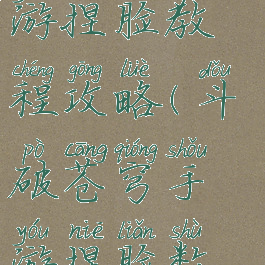 游捏脸教
chéng gōng lüè dǒu
程攻略(斗
pò cāng qióng shǒu
破苍穹手
yóu niē liǎn shù
游捏脸数